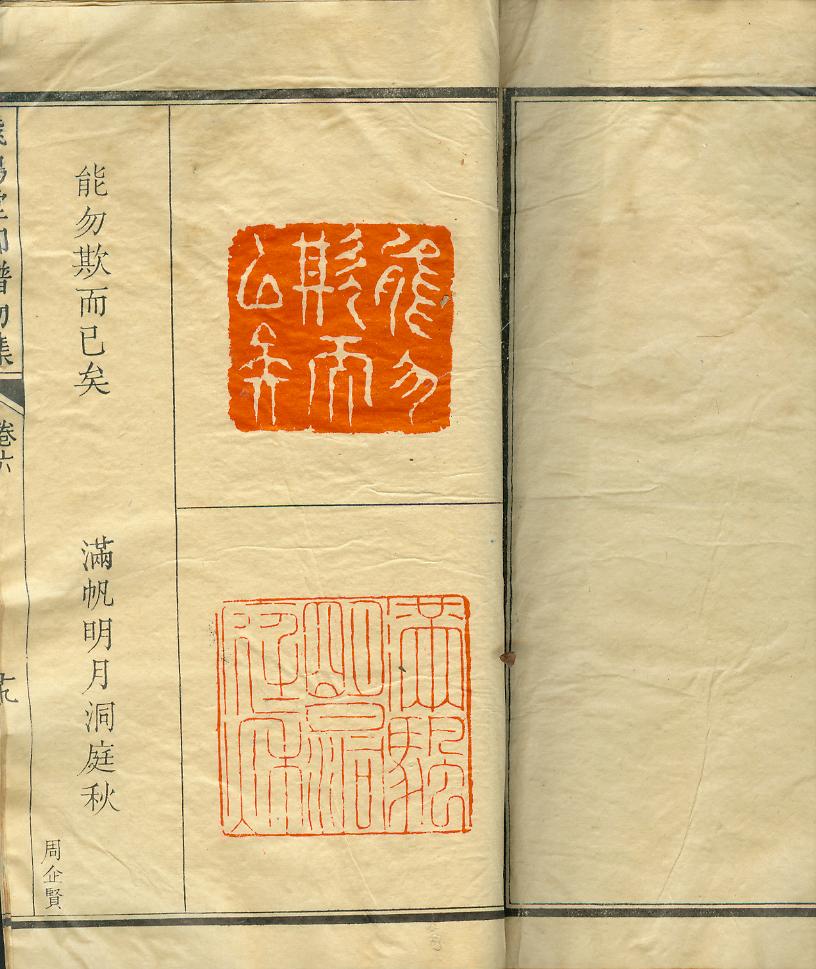 能勿
欺而
已矣
滿帆
明月洞
庭秋
能勿欺而已矣
滿帆明月洞庭秋
周企賢
堂印譜初集
卷六
十九